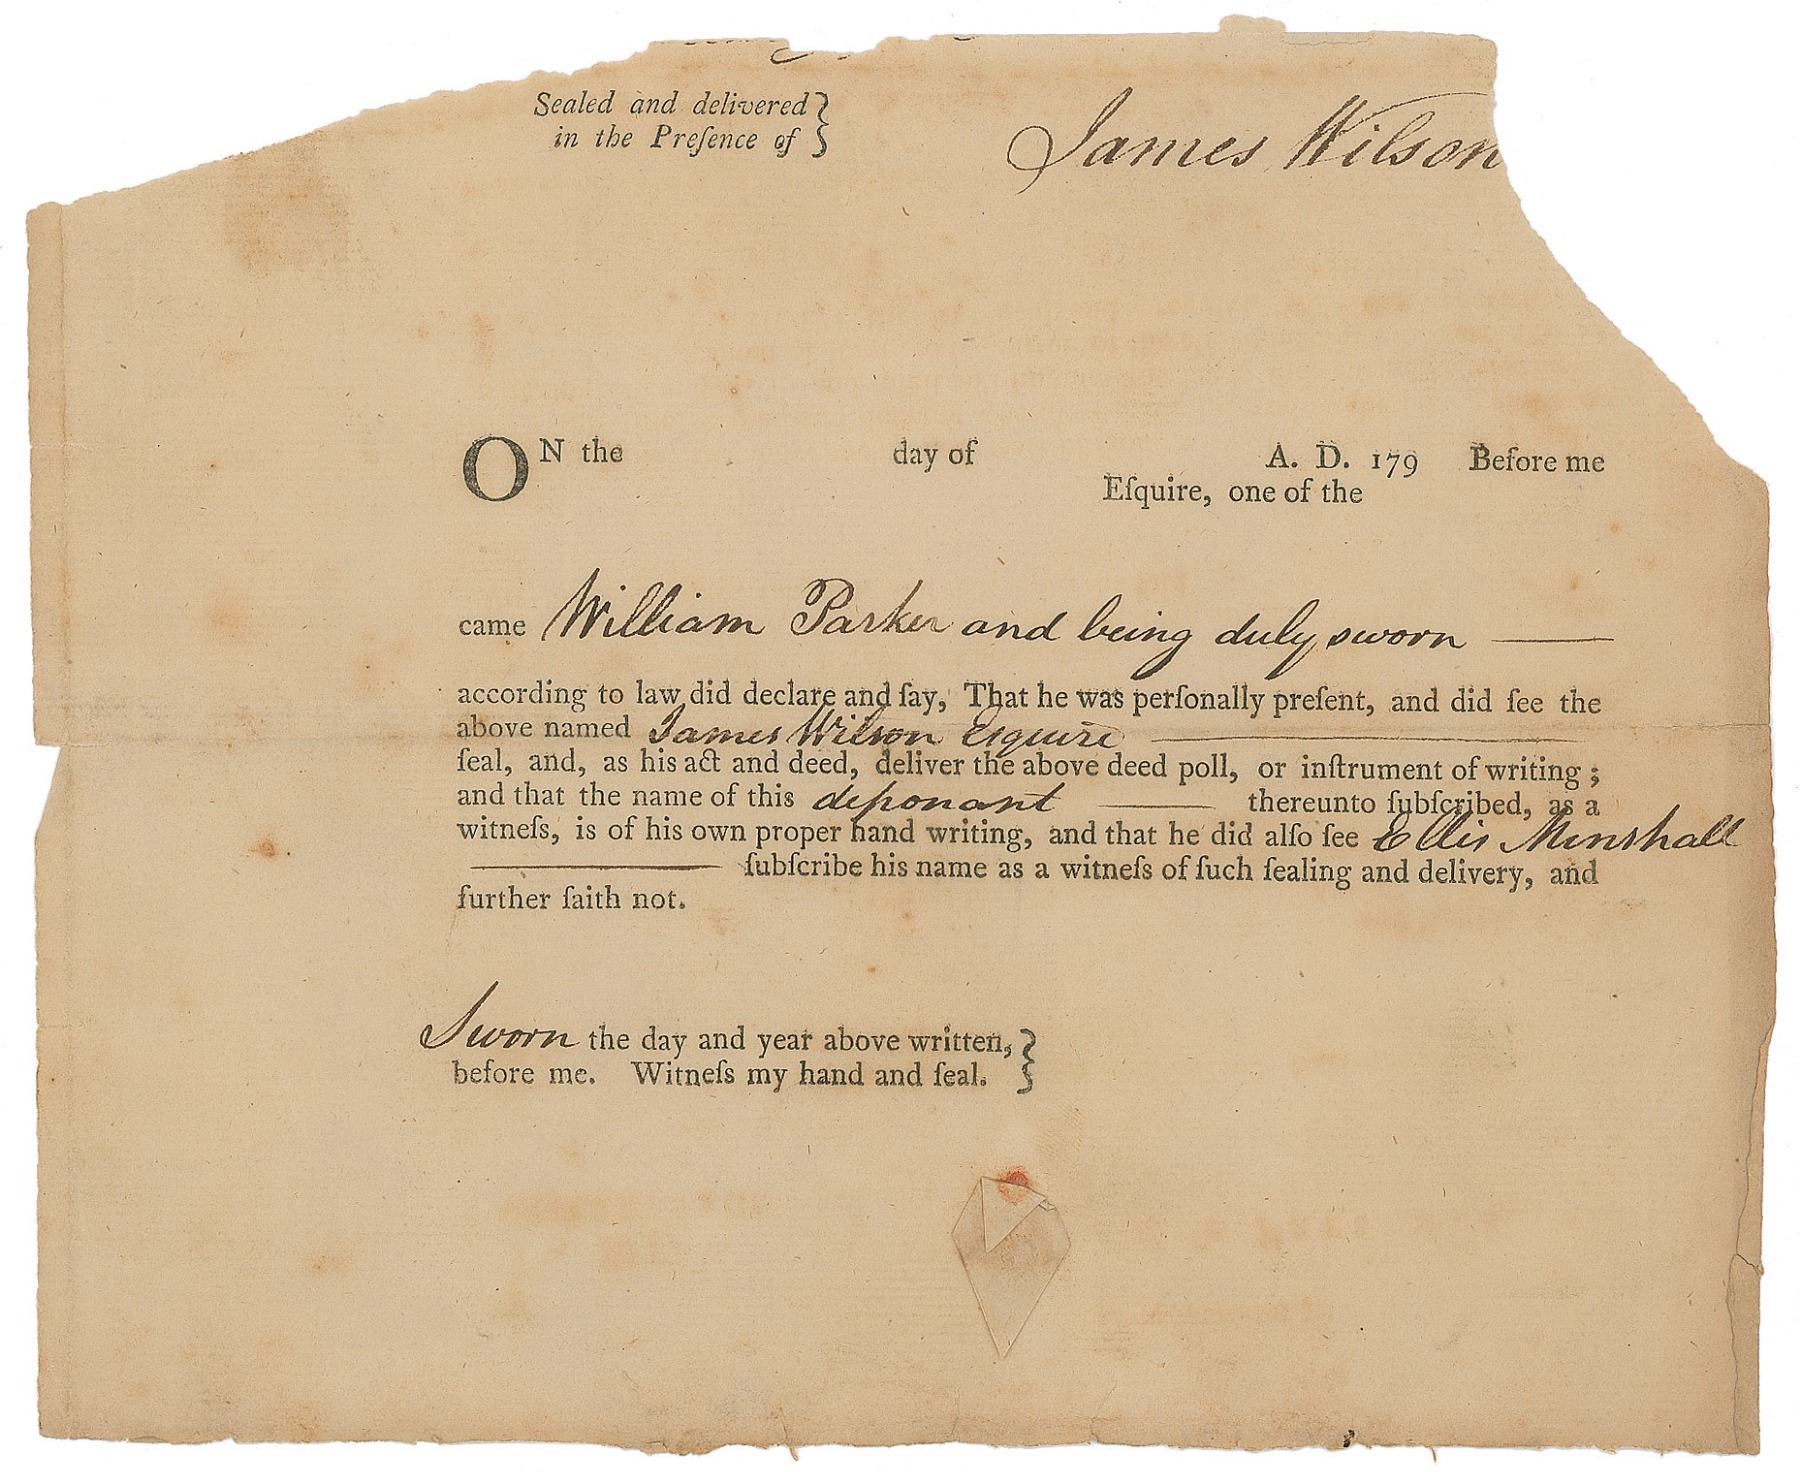 Sealed and delivered }
in the Preſence of }
James Wilson
ON the day of A. D. 179 Before me
Eſquire, one of the
came William Parker and being duly sworn ——
according to law did declare and ſay, That he was perſonally preſent, and did ſee the
above named James Wilson Esquire ——
ſeal, and, as his act and deed, deliver the above deed poll, or inſtrument of writing;
and that the name of this deponant —— thereunto ſubſcribed, as a
witneſs, is of his own proper hand writing, and that he did alſo ſee Ellis Minshall
—— ſubſcribe his name as a witneſs of ſuch ſealing and delivery, and
further ſaith not.
Sworn the day and year above written, }
before me. Witneſs my hand and ſeal. }